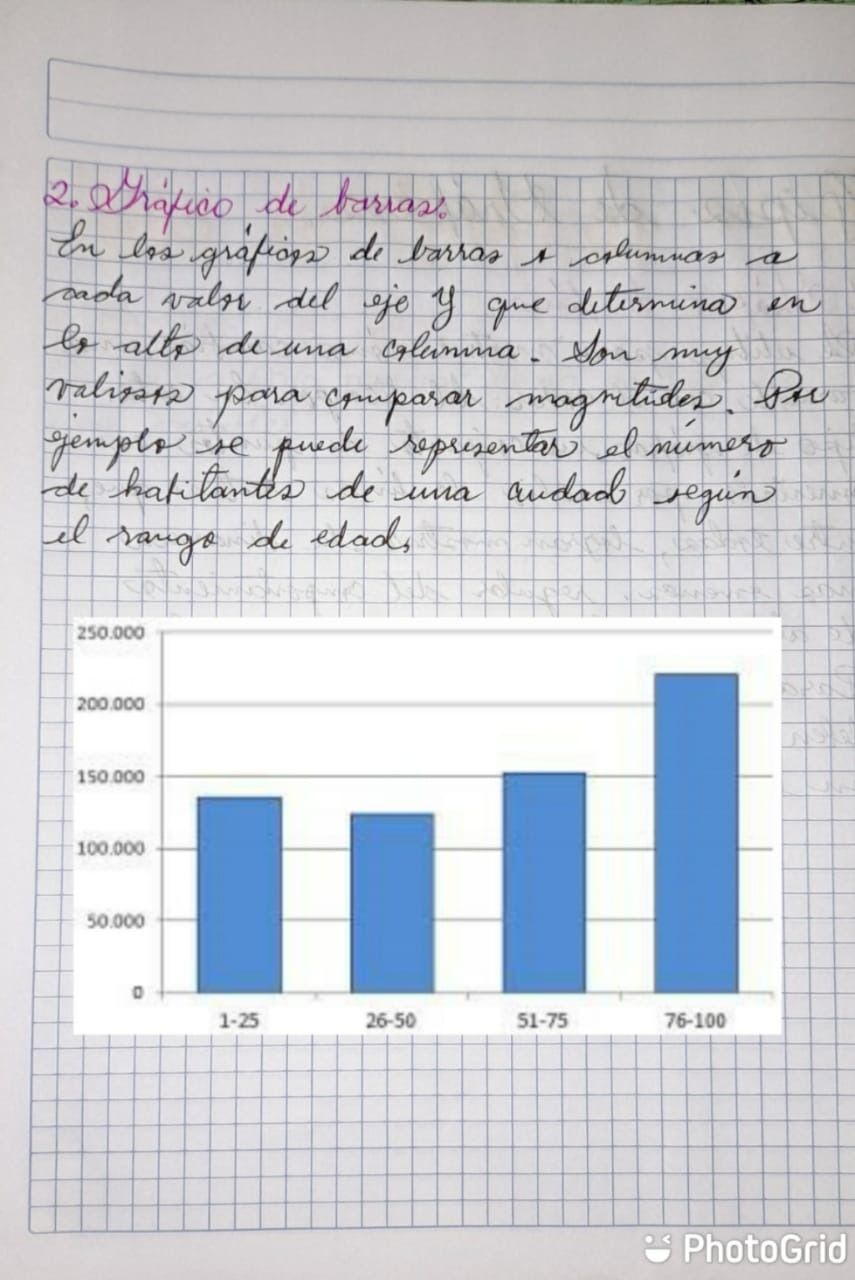 2. Gráfico de barras:
En los gráficos de barras o columnas a
cada valor del eje Y que determina en
lo alto de una columna. Son muy
valiosos para comparar magnitudes. Por
ejemplo se puede representar el número
de habitantes de una ciudad según
el rango de edad.
250.000
200.000
150.000
100.000
50.000
0
1-25 26-50 51-75 76-100
PhotoGrid